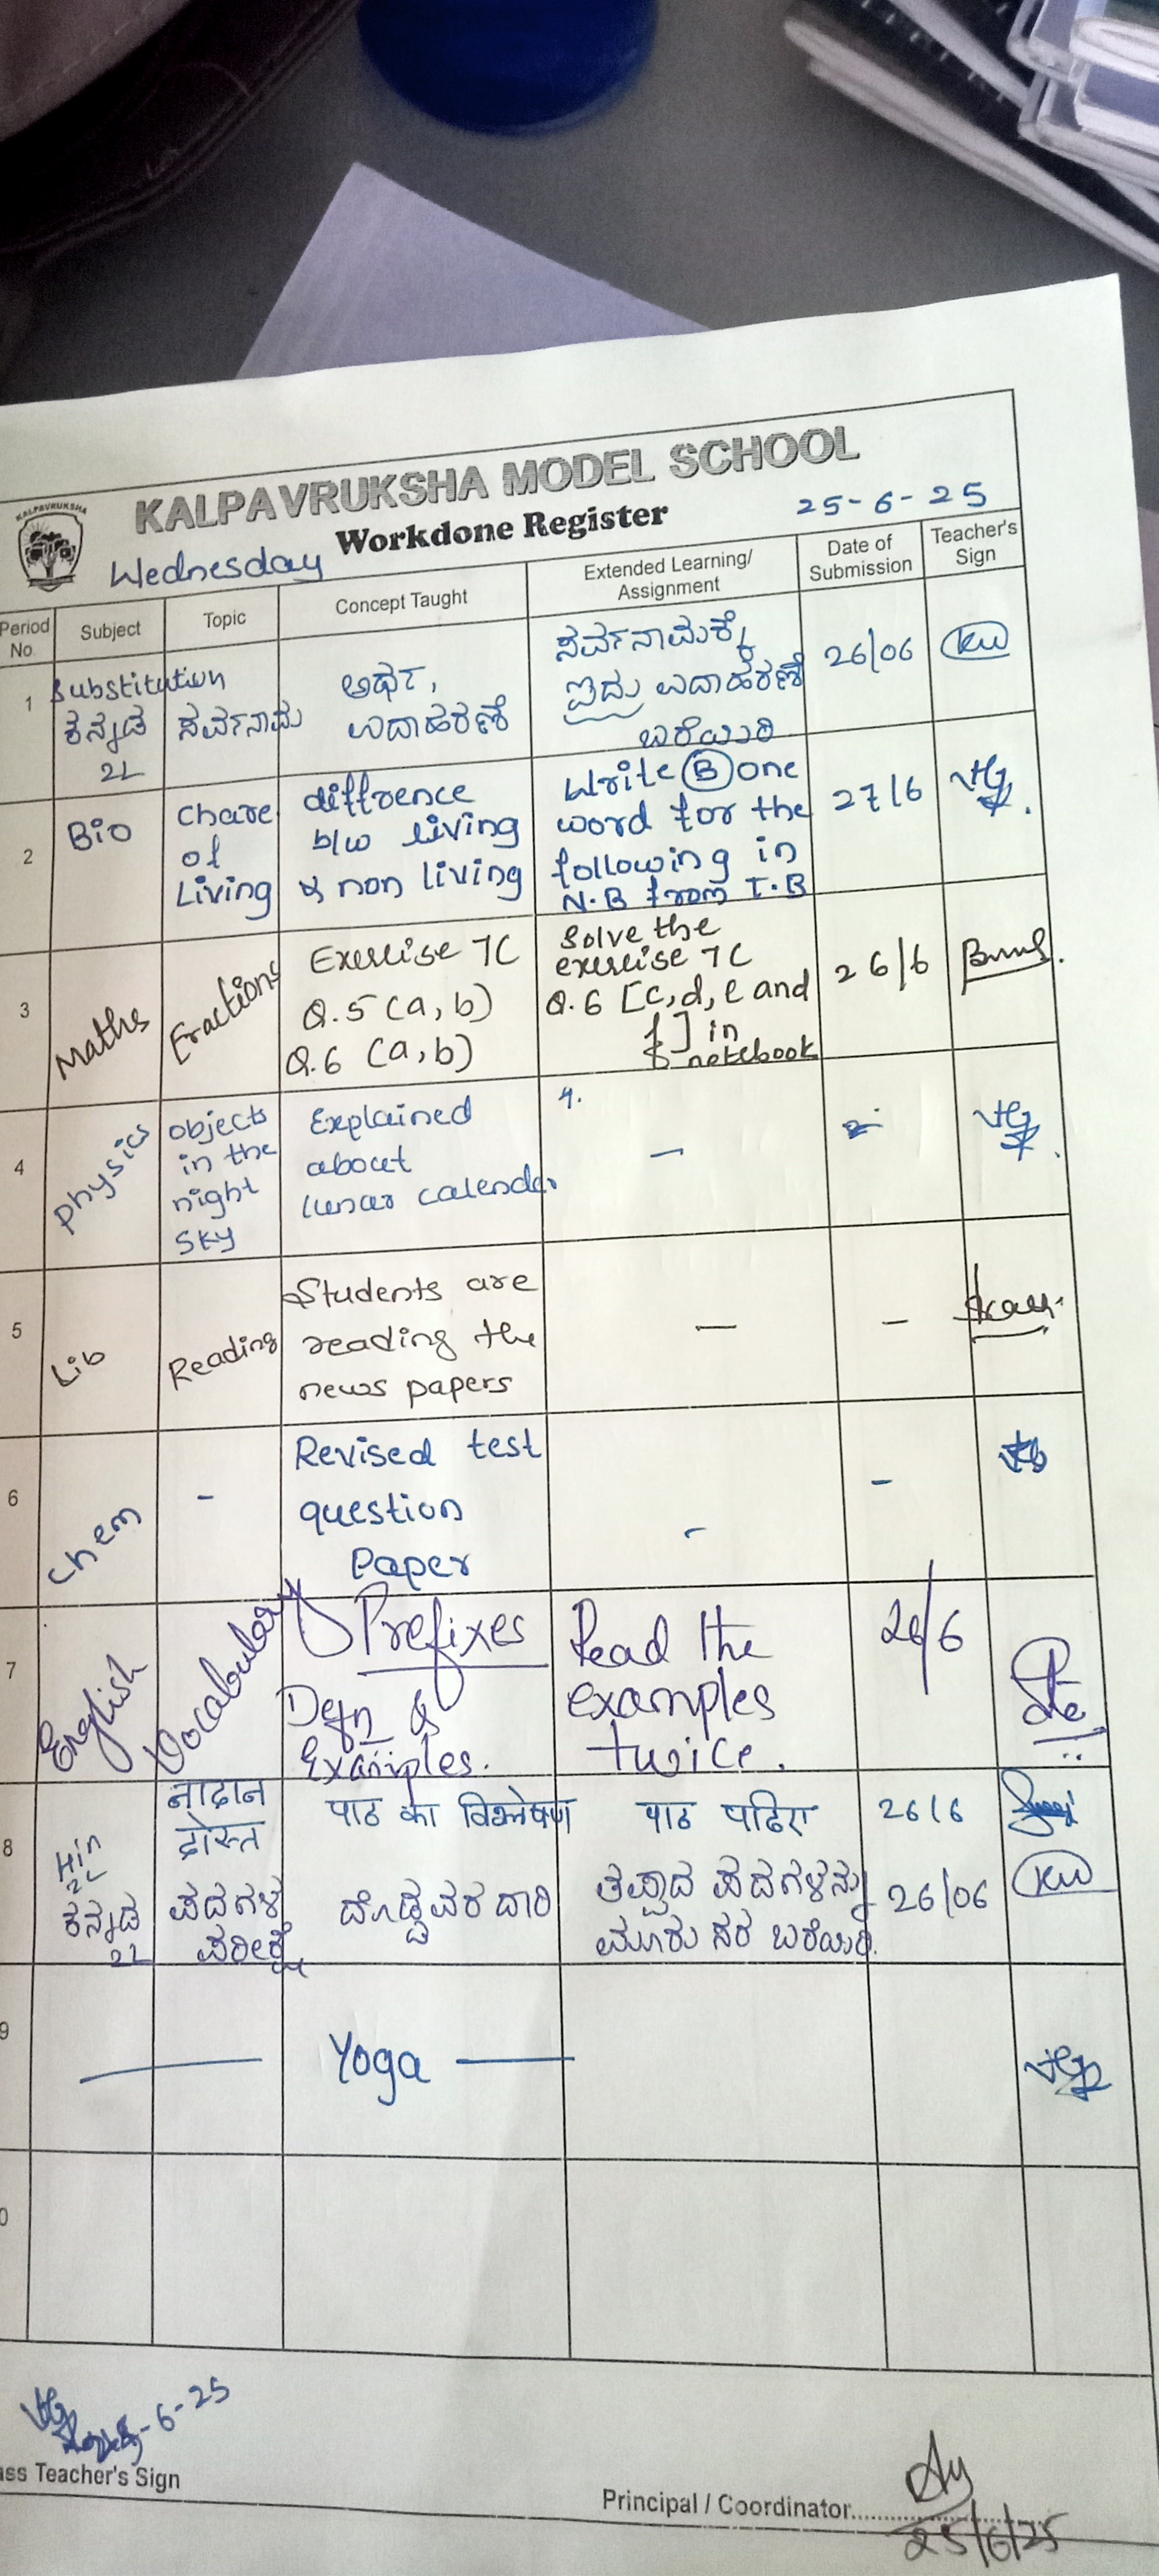 KALPAVRUKSHA
KALPAVRUKSHA MODEL SCHOOL
Workdone Register
25-6-25
Wednesday
Period No.
Subject
Topic
Concept Taught
Extended Learning/
Assignment
Date of
Submission
Teacher's
Sign
1
Substitution
ಕನ್ನಡ
2L
ಸರ್ವನಾಮ
ಅರ್ಥ,
ಉದಾಹರಣೆ
ಸರ್ವನಾಮಕ್ಕೆ
ಐದು ಉದಾಹರಣೆ
ಬರೆಯಿರಿ
26/06
KW
2
Bio
Chare
of
Living
diffrence
b/w living
& non living
Write B one
word for the
following in
N.B from T.B
27/6
3
Maths
Fractions
Exercise 7C
Q.5 (a, b)
Q.6 (a, b)
Solve the
exercise 7C
Q.6 [c, d, e and
f] in
notebook
26/6
4
Physics
Objects
in the
night
sky
Explained
about
lunar calender
4.
-
5
Lib
Reading
Students are
reading the
news papers
-
-
6
Chem
-
Revised test
question
Paper
-
-
7
English
Vocabulary
Prefixes
Defn &
Examples.
Read the
examples
twice.
26/6
8
Hin
2L
नादान
दोस्त
पाठ का विश्लेषण
पाठ पढिए
26/6
ಕನ್ನಡ
2L
ಪದಗಳ
ಪರೀಕ್ಷೆ
ದೊಡ್ಡವರ ದಾರಿ
ತಪ್ಪಾದ ಪದಗಳನ್ನು
ಮೂರು ಸರ ಬರೆಯಿರಿ.
26/06
KW
9
Yoga
0
5-6-25
ass Teacher's Sign
Principal / Coordinator
25/6/25